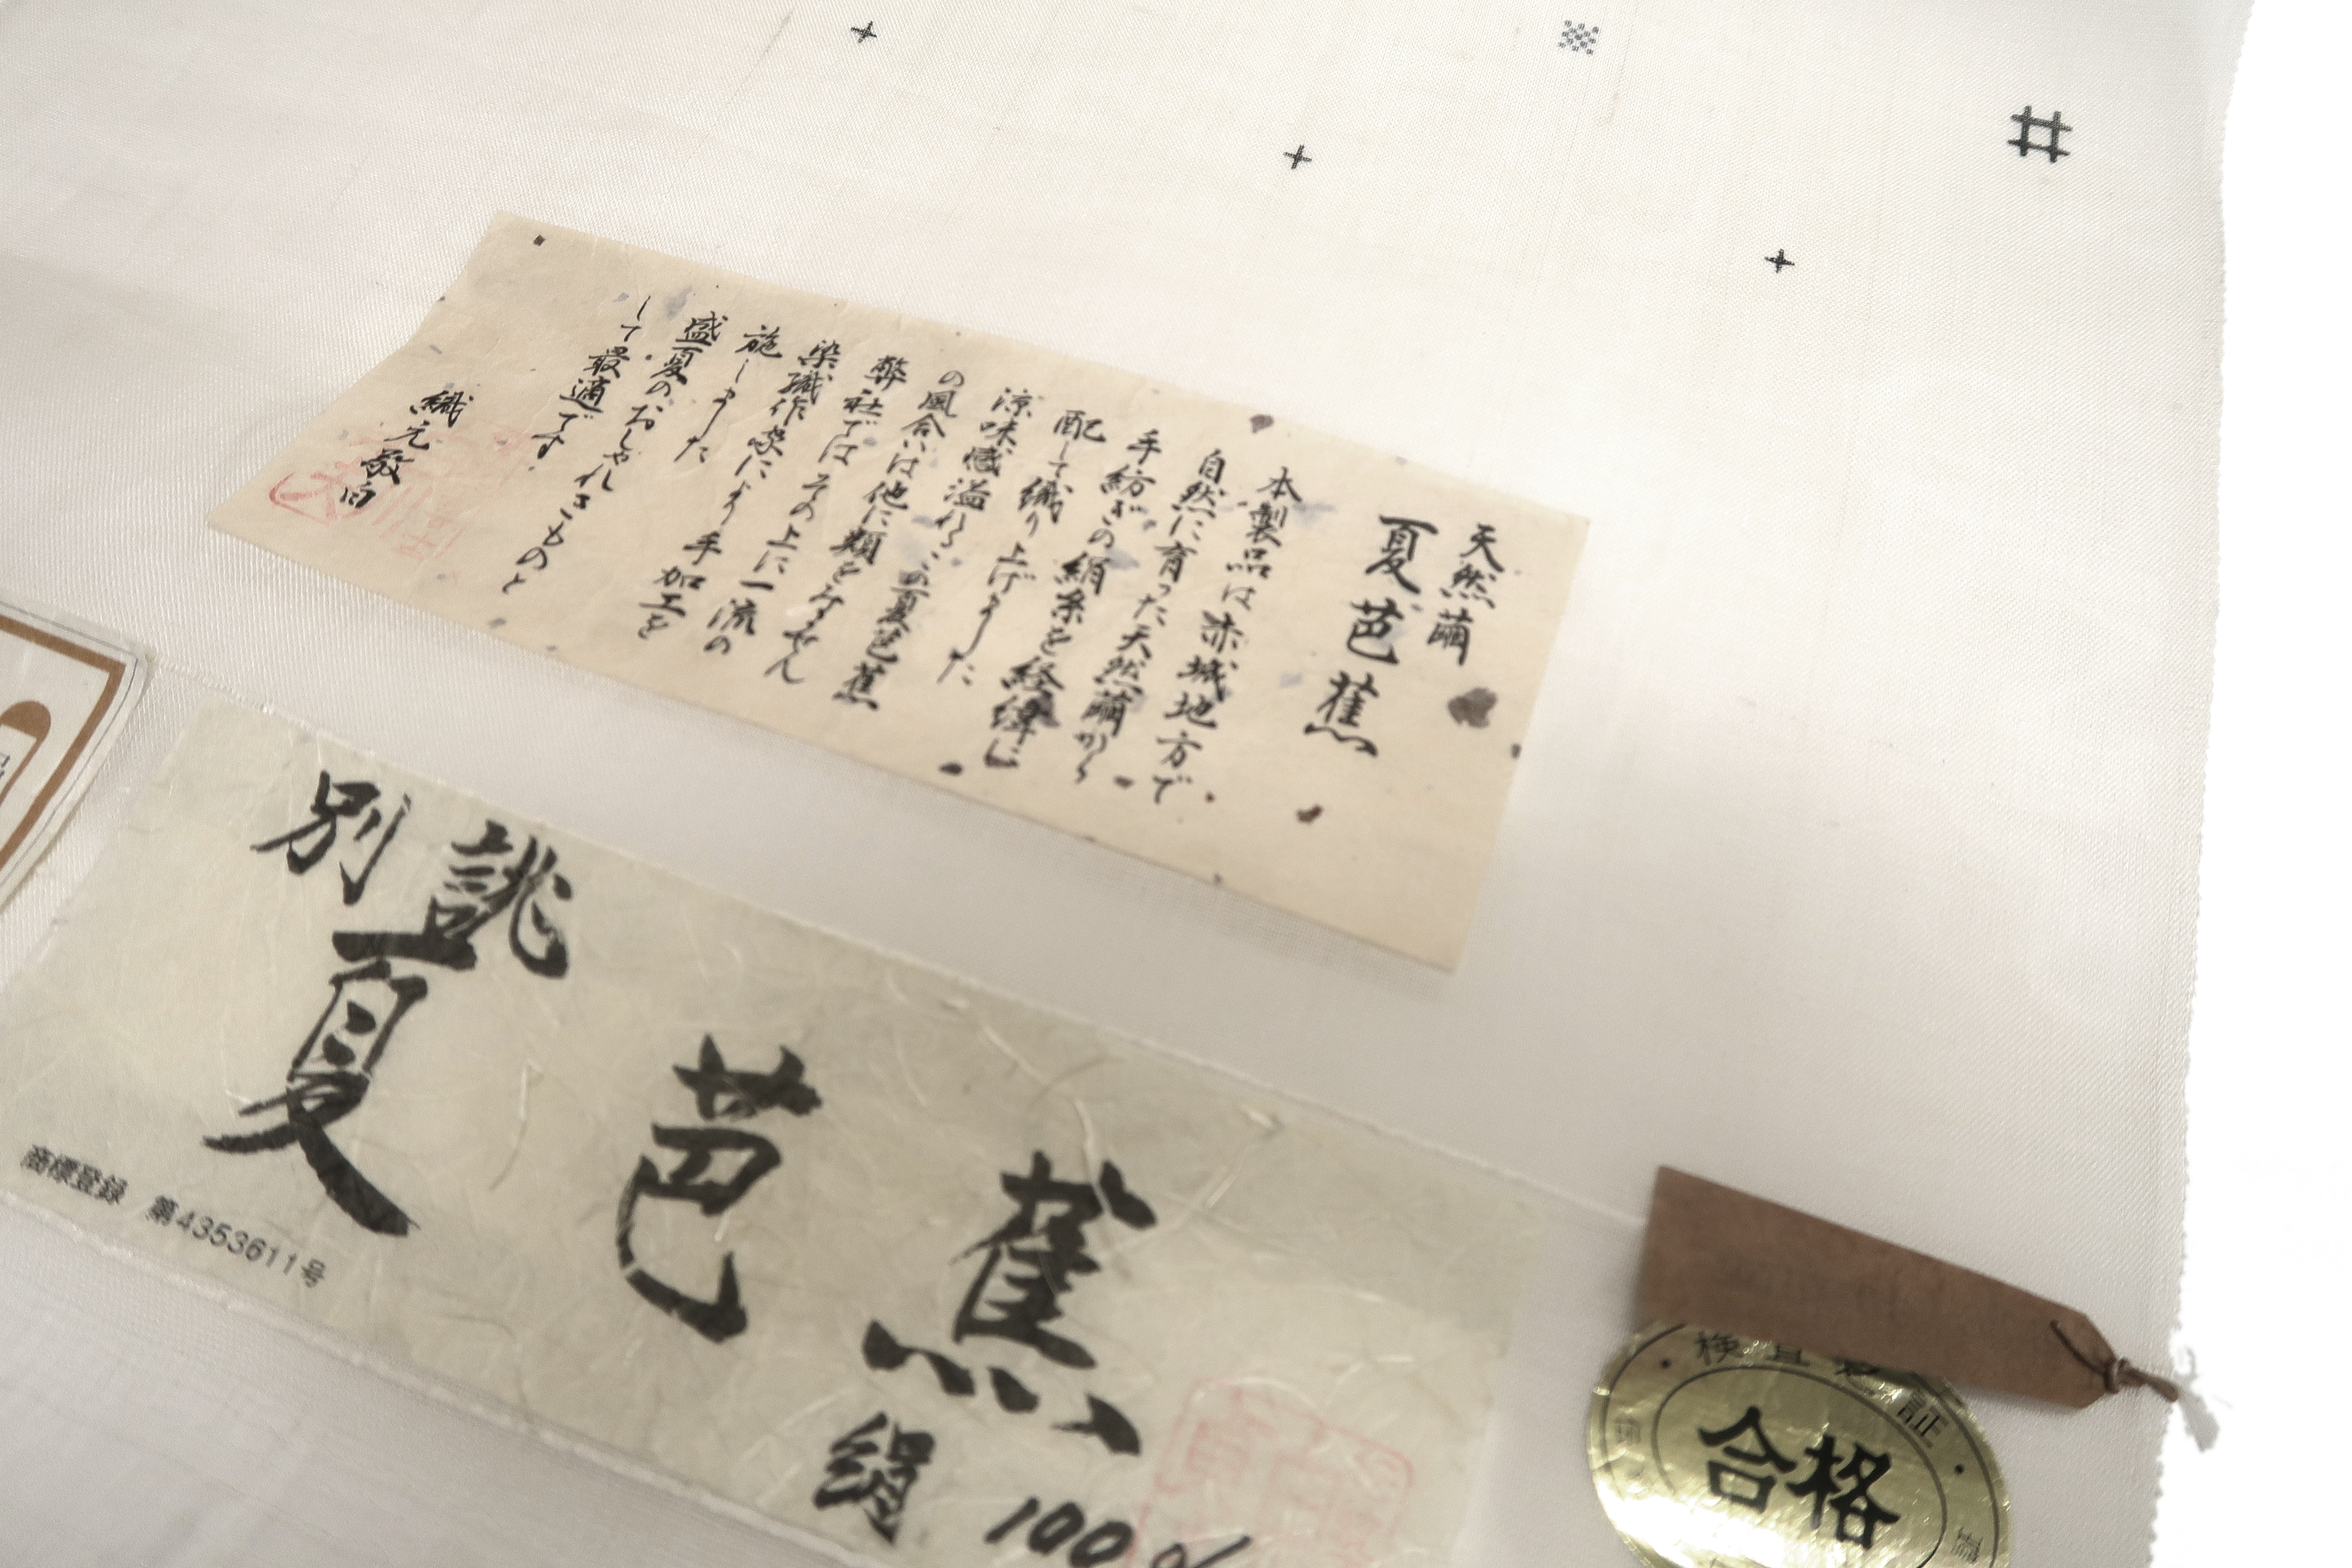 天然繭
夏芭蕉
本製品は赤城地方で
自然に育った天然繭から
手紡ぎの絹糸を経緯に
配して織り上げました
涼味感溢れるこの夏芭蕉
の風合いは他に類をみません
弊社ではその上に一流の
染織作家により手加工を
施しました
盛夏のおしゃれきものと
して最適です
織元敬白
別誂
夏芭蕉
絹100%
商標登録 第4353611号
検査 証
合格